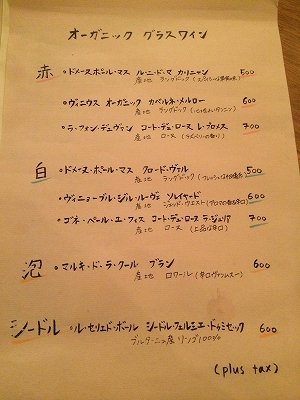 オーガニック グラスワイン
赤 ・ドメーヌ・ポール・マス ル・ニ・ド・マ カリニャン 500
産地 ラングドック
・ヴィニウス オーガニック カベルネ・メルロー 600
産地 ラングドック
・ラ・フォン・デュヴァン コート・デュ・ローヌ レ・プロメス 700
産地 ローヌ
白 ・ドメーヌ・ポール・マス クロード・ヴァル 500
産地 ラングドック
・ヴィニョーブル・ジル・ルーヴェ ソレイヤード 600
産地
・ゴネ・ペール・エ・フィス コート・デュ・ローヌ 700
産地 ローヌ (上品な辛口)
泡 ・マルキ・ド・ラ・クール ブラン 600
産地 ロワール
シードル ・ル・セリエ・ド・ボール シードル・フェルミエ・ドゥミセック 600
ブルターニュ産リンゴ100%
(plus tax)